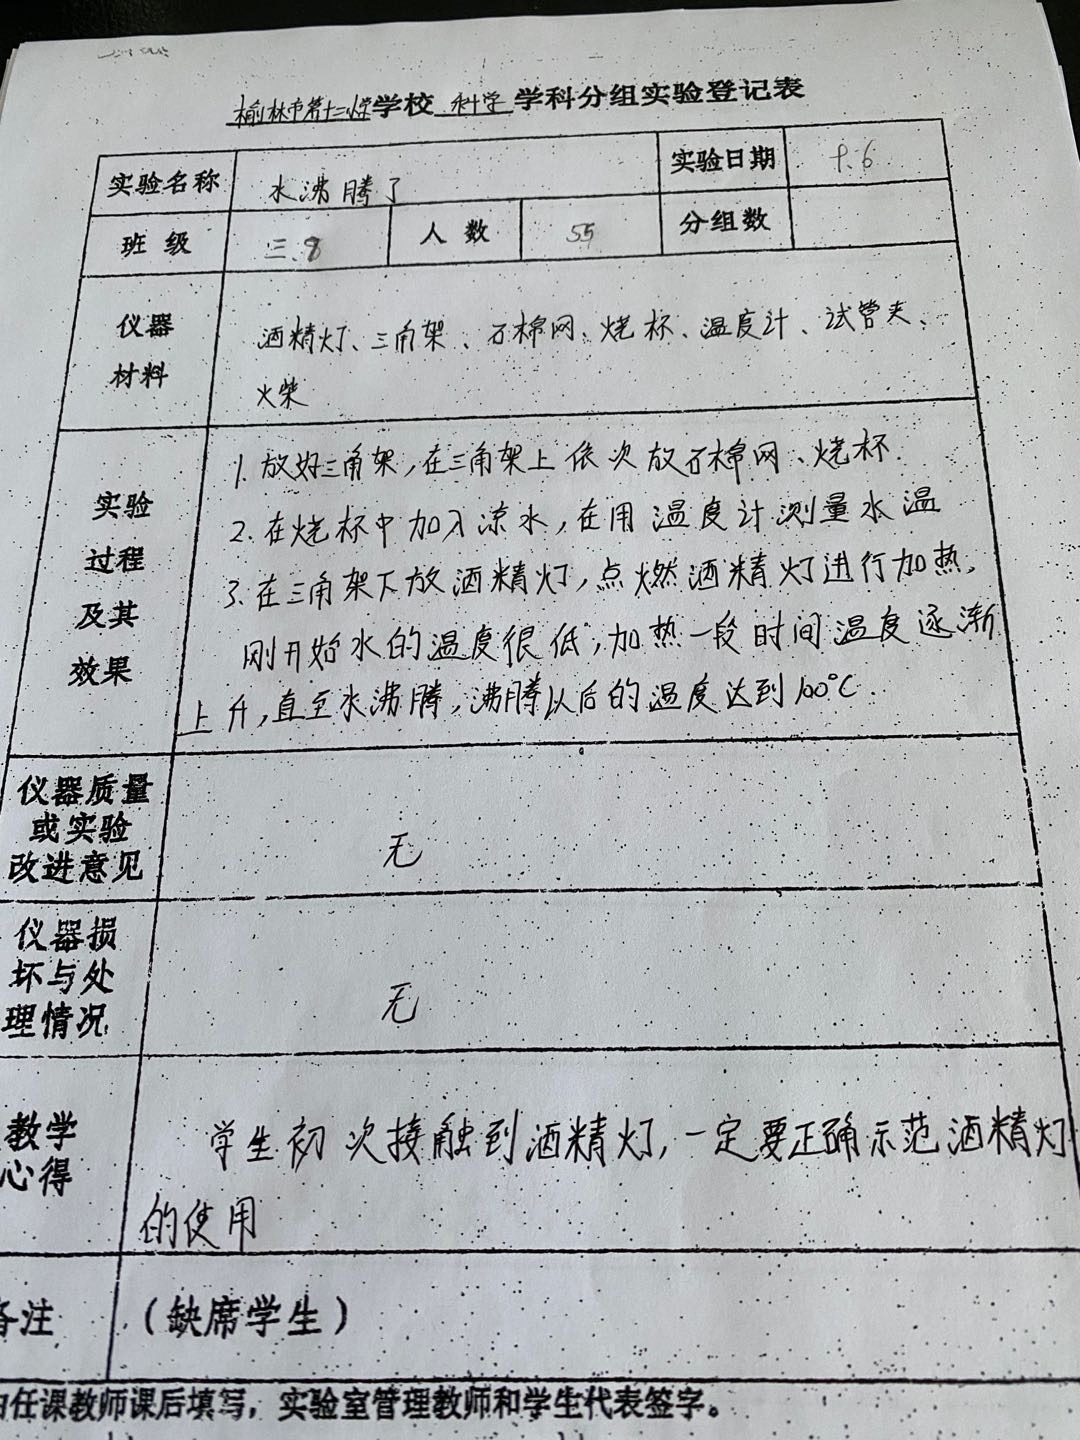 榆林市第十二小学学校 科学 学科分组实验登记表
实验名称 水沸腾了 实验日期 9.6
班 级 三.8 人 数 55 分组数
仪器 材料 酒精灯、三角架、石棉网、烧杯、温度计、试管夹、
火柴
实验 过程 及其 效果
1. 放好三角架,在三角架上依次放石棉网、烧杯.
2. 在烧杯中加入凉水,在用温度计测量水温
3. 在三角架下放酒精灯,点燃酒精灯进行加热.
刚开始水的温度很低,加热一段时间温度逐渐
上升,直至水沸腾,沸腾以后的温度达到100°C.
仪器质量
或实验
改进意见
无
仪器损
坏与处
理情况
无
教学
心得
学生初次接触到酒精灯,一定要正确示范酒精灯
的使用
备注 (缺席学生)
由任课教师课后填写,实验室管理教师和学生代表签字。